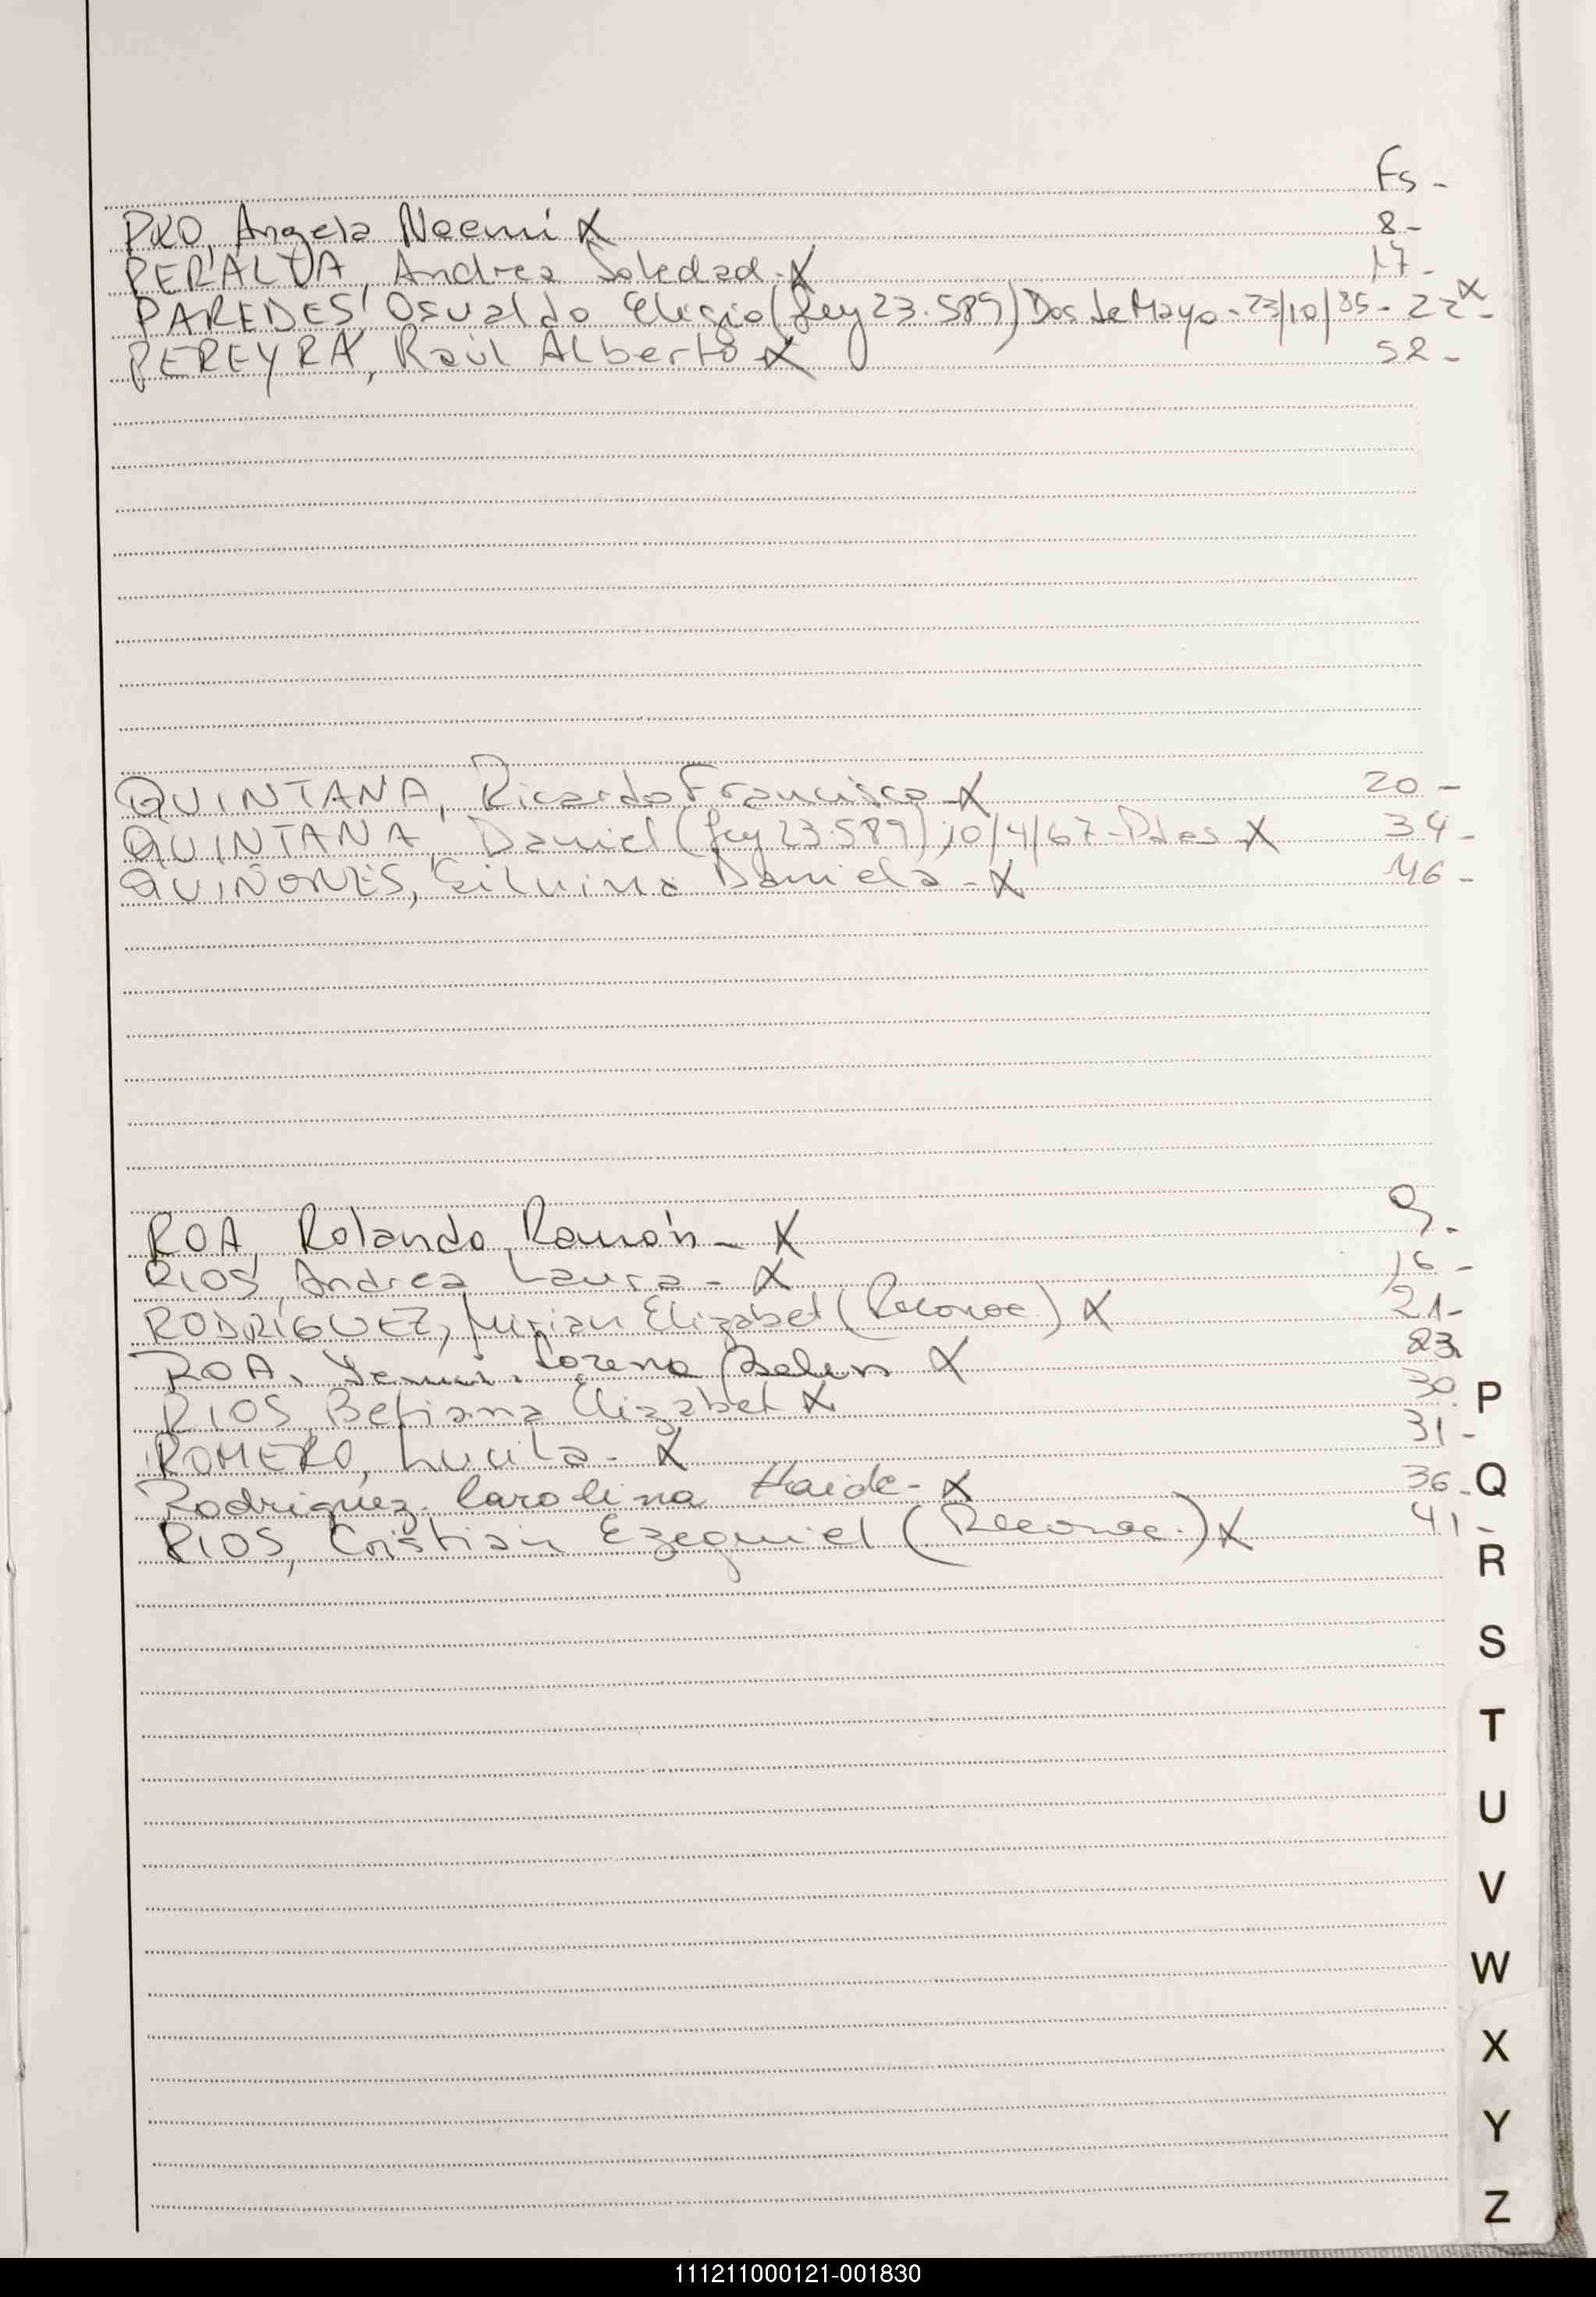 Fs -
Angela Noemi X 8 -
PERALTA, Andrea Soledad - X 17 -
PAREDES Osvaldo Eligio (Ley 23.589) Dos de Mayo - 23/10/85 - 22 X -
PEREYRA, Raúl Alberto X 52 -
QUINTANA, Ricardo Francisco X 20 -
QUINTANA, Daniel (Ley 23.589) 10/4/67 - Pdas X 34 -
QUIÑONES, Silvina Daniela - X 46 -
ROA, Rolando Ramón - X 9 -
RIOS, Andrea Laura - X 16 -
RODRÍGUEZ, Mirian Elizabet (Reconoc.) X 21 -
ROA, Lorena Belen X 23
RIOS, Betiana Elizabet X 30
ROMERO, Lucila - X 31 -
Rodriguez. Carolina Haide - X 36 -
RIOS, Cristian Ezequiel (Reconoc.) X 41 -
P
Q
R
S
T
U
V
W
X
Y
Z
111211000121-001830